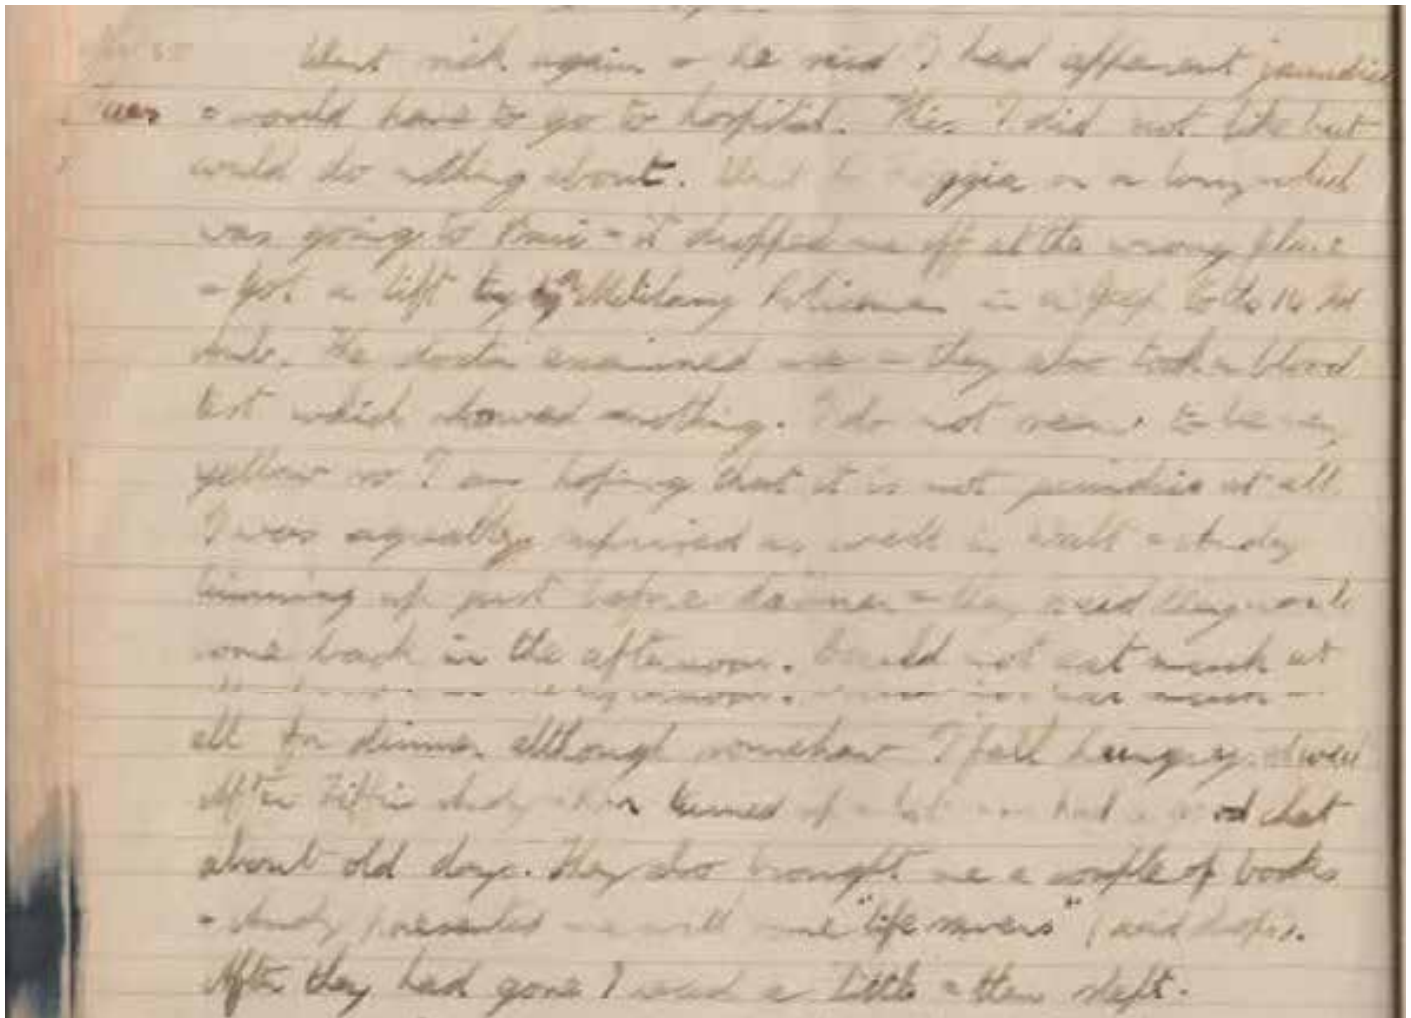 Went sick again & he said I had apparent jaundice
Tues & would have to go to hospital. This I did not like but
could do nothing about. Went to ggia on a lorry which
was going to & it dropped me off at the wrong place
& got a lift by Military Policeman in a jeep to the
The doctor examined me & they also took a blood
test which showed nothing. I do not seem to be very
yellow so I am hoping that it is not jaundice at all.
I was equally surprised as well & Andy
turning up just before dinner & they said they would
come back in the afternoon. Could not eat much at
all for dinner although somehow I feel hungry
After Tiffin Andy turned up & had a good chat
about old days. They also brought me a couple of books
& Andy presented me with some "life savers" (acid drops).
After they had gone I read a little & then slept.